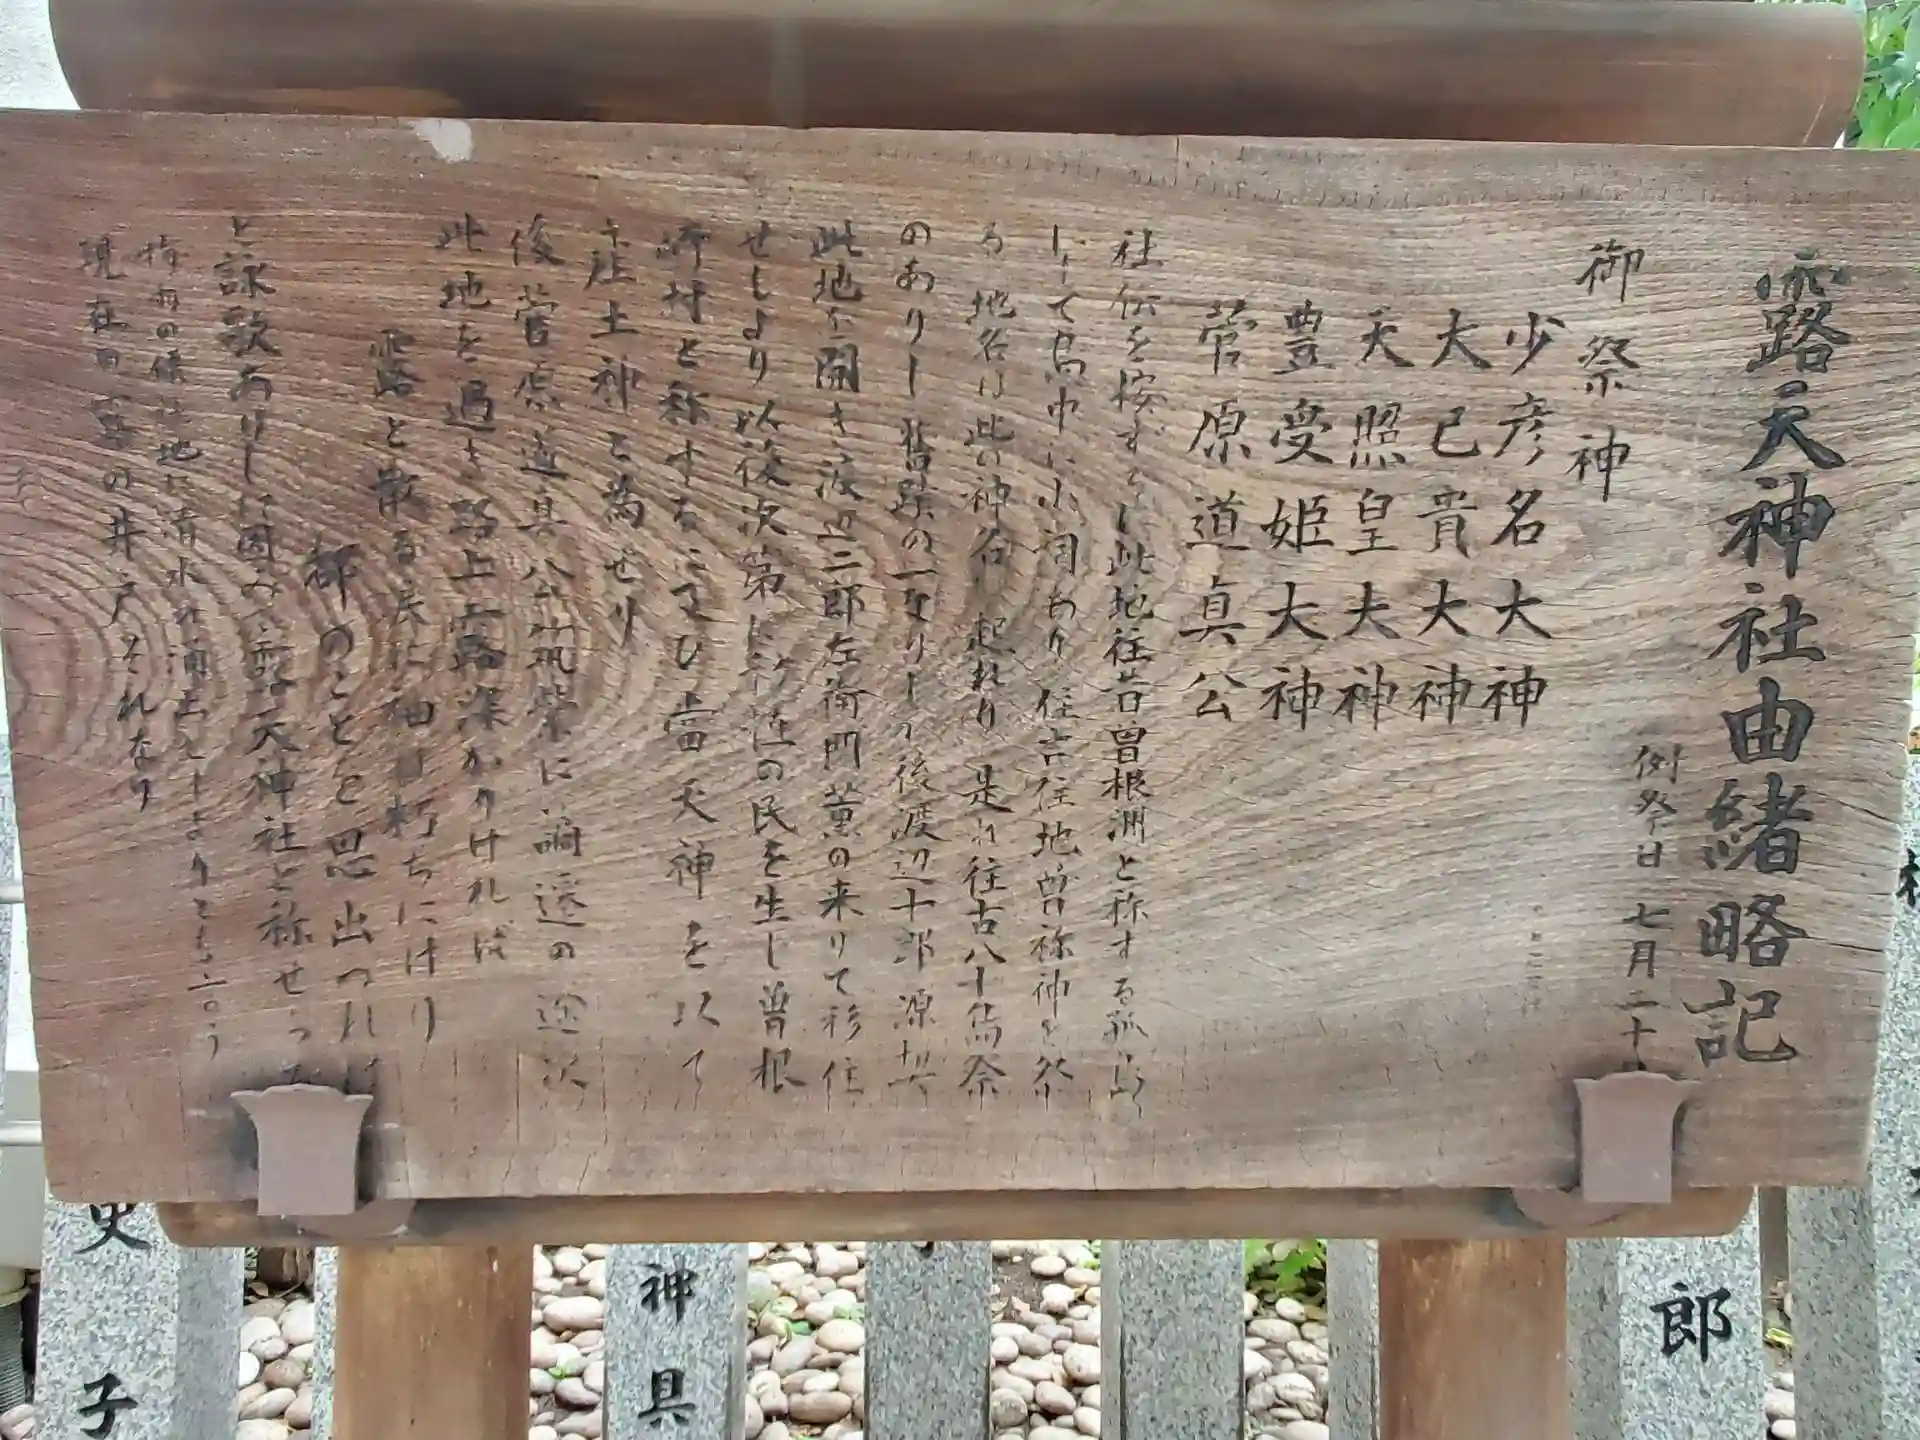 露天神社由緒略記
例祭日 七月二十
御祭神
少彦名大神
大己貴大神
天照皇大神
豊受姫大神
菅原道真公
社伝を按ずるに此地往昔曽根洲と称する孤島
にして島中に小祠あり 住吉住地曽祢神を祭
る 地名は此の神名に起れり 是れ往古八十島祭
のありし旧跡の一なりしが後渡辺十郎源
此地を開き渡辺二郎左衛門薫の来りて移住
せしより以後次第に移住の民を生し曽根
崎村と称するに至ひ当天神を以て
産土神と為せり
後菅原道真公筑紫に謫遷の途次
此地を過き路上露深かりければ
露と散る涙に袖は朽ちにけり
都のことを思ひ出つれば
と詠歌ありしに因み露天神社と称せ
清水
現在 の井戸それなり
史
子
神
具
郎